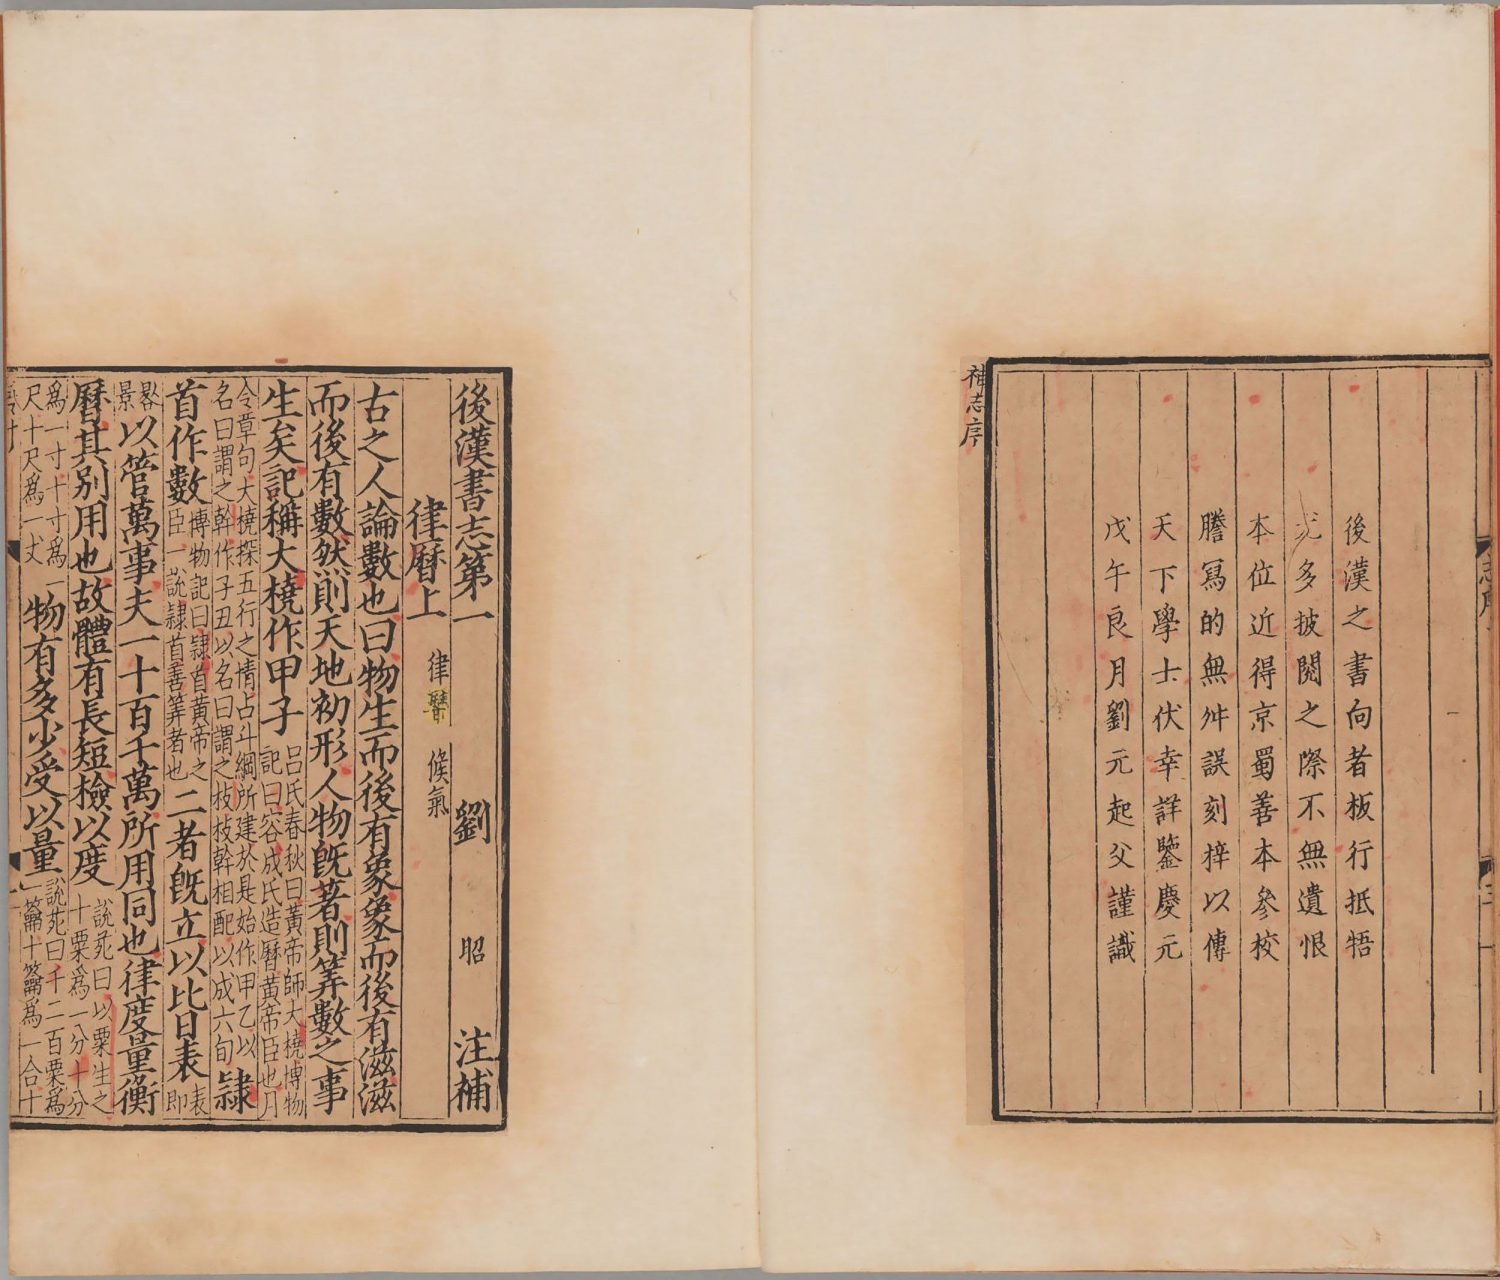 後漢之書向者板行抵牾
尤多披閱之際不無遺恨
本位近得京蜀善本參校
謄寫的無舛誤刻梓以傳
天下學士伏幸詳鑒慶元
戊午良月劉元起父謹識
補志序
後漢書志第一 劉昭注補
律曆上 律曆 候氣
古之人論數也曰物生而後有象象而後有滋滋
而後有數然則天地初形人物旣著則筭數之事
生矣記稱大橈作甲子 呂氏春秋曰黃帝師大橈博物
記曰容成氏造曆黃帝臣也月
令章句大橈探五行之情占斗綱所建於是始作甲乙以
名日謂之幹作子丑以名日謂之枝枝幹相配以成六旬 隷
首作數 博物記曰隷首黃帝之
臣一說隷首善筭者也 二者旣立以比日表 表
即
晷
景 以管萬事夫一十百千萬所用同也律度量衡
曆其別用也故體有長短檢以度 說苑曰以粟生之
十粟爲一分十分
爲一寸十寸爲一
尺十尺爲一丈 物有多少受以量 說苑曰千二百粟爲
一籥十籥爲一合十